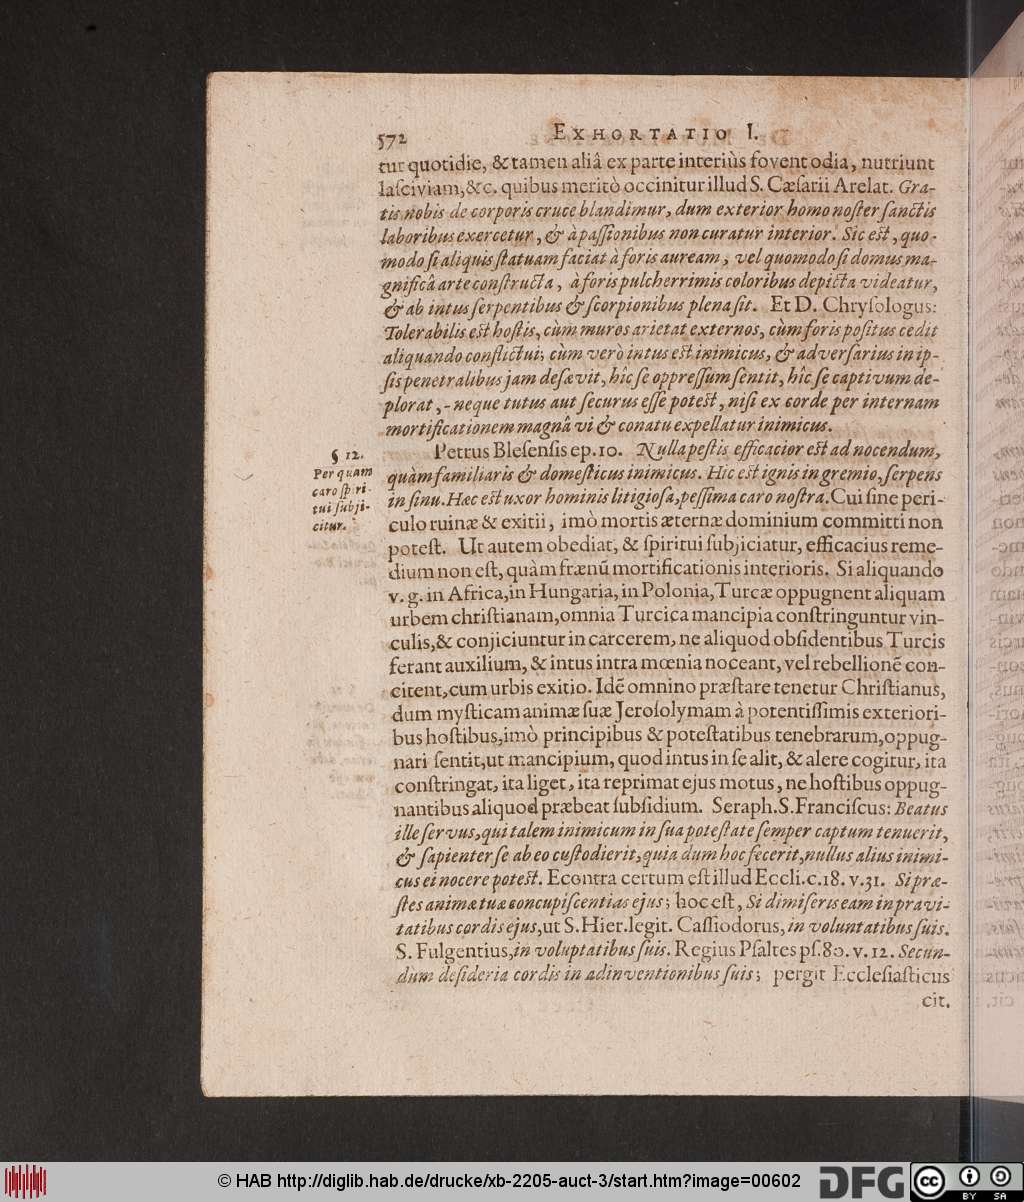 572 EXHORTATIO I.
tur quotidie, & tamen aliâ ex parte interiùs fovent odia, nutriunt
laſciviam, &c. quibus meritò occinitur illud S. Cæſarii Arelat. Gra-
tis nobis de corporis cruce blandimur, dum exterior homo noſter ſanctis
laboribus exercetur, & à paſſionibus non curatur interior. Sic eſt, quo-
modo ſi aliquis ſtatuam faciat à foris auream, vel quomodo ſi domus ma-
gnificâ arte conſtructa, à foris pulcherrimis coloribus depicta videatur,
& ab intus ſerpentibus & ſcorpionibus plena ſit. Et D. Chryſologus:
Tolerabilis eſt hoſtis, cùm muros arietat externos, cùm foris poſitus cedit
aliquando conflictui; cùm verò intus eſt inimicus, & adverſarius in ip-
ſis penetralibus jam deſævit, hîc ſe oppreſſum ſentit, hîc ſe captivum de-
plorat, - neque tutus aut ſecurus eſſe poteſt, niſi ex corde per internam
mortificationem magnâ vi & conatu expellatur inimicus.
§ 12.
Per quam
caro ſpiri-
tui ſubji-
citur.
Petrus Bleſenſis ep. 10. Nulla peſtis efficacior eſt ad nocendum,
quàm familiaris & domeſticus inimicus. Hic eſt ignis in gremio, ſerpens
in ſinu. Hæc eſt uxor hominis litigioſa, peſſima caro noſtra. Cui ſine peri-
culo ruinæ & exitii, imò mortis æternæ dominium committi non
poteſt. Ut autem obediat, & ſpiritui ſubjiciatur, efficacius reme-
dium non eſt, quàm frænū mortificationis interioris. Si aliquando
v. g. in Africa, in Hungaria, in Polonia, Turcæ oppugnent aliquam
urbem chriſtianam, omnia Turcica mancipia conſtringuntur vin-
culis, & conjiciuntur in carcerem, ne aliquod obſidentibus Turcis
ferant auxilium, & intus intra mœnia noceant, vel rebellionē con-
citent, cum urbis exitio. Idē omnino præſtare tenetur Chriſtianus,
dum myſticam animæ ſuæ Jeroſolymam à potentiſſimis exteriori-
bus hoſtibus, imò principibus & poteſtatibus tenebrarum, oppug-
nari ſentit, ut mancipium, quod intus in ſe alit, & alere cogitur, ita
conſtringat, ita liget, ita reprimat ejus motus, ne hoſtibus oppug-
nantibus aliquod præbeat ſubſidium. Seraph. S. Franciſcus: Beatus
ille ſervus, qui talem inimicum in ſua poteſtate ſemper captum tenuerit,
& ſapienter ſe ab eo cuſtodierit, quia dum hoc fecerit, nullus alius inimi-
cus ei nocere poteſt. Econtra certum eſt illud Eccli. c. 18. v. 31. Si præ-
ſtes animæ tuæ concupiſcentias ejus; hoc eſt, Si dimiſeris eam in pravi-
tatibus cordis ejus, ut S. Hier. legit. Caſſiodorus, in voluntatibus ſuis.
S. Fulgentius, in voluptatibus ſuis. Regius Pſaltes pſ. 80. v. 12. Secun-
dum deſideria cordis in adinventionibus ſuis; pergit Eccleſiaſticus
cit.
© HAB http://diglib.hab.de/drucke/xb-2205-auct-3/start.htm?image=00602
DFG cc BY SA